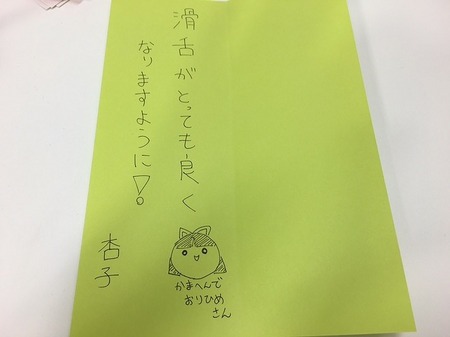 滑舌がとっても良く
なりますように!
杏子
かまへんで
おりひめ
さん